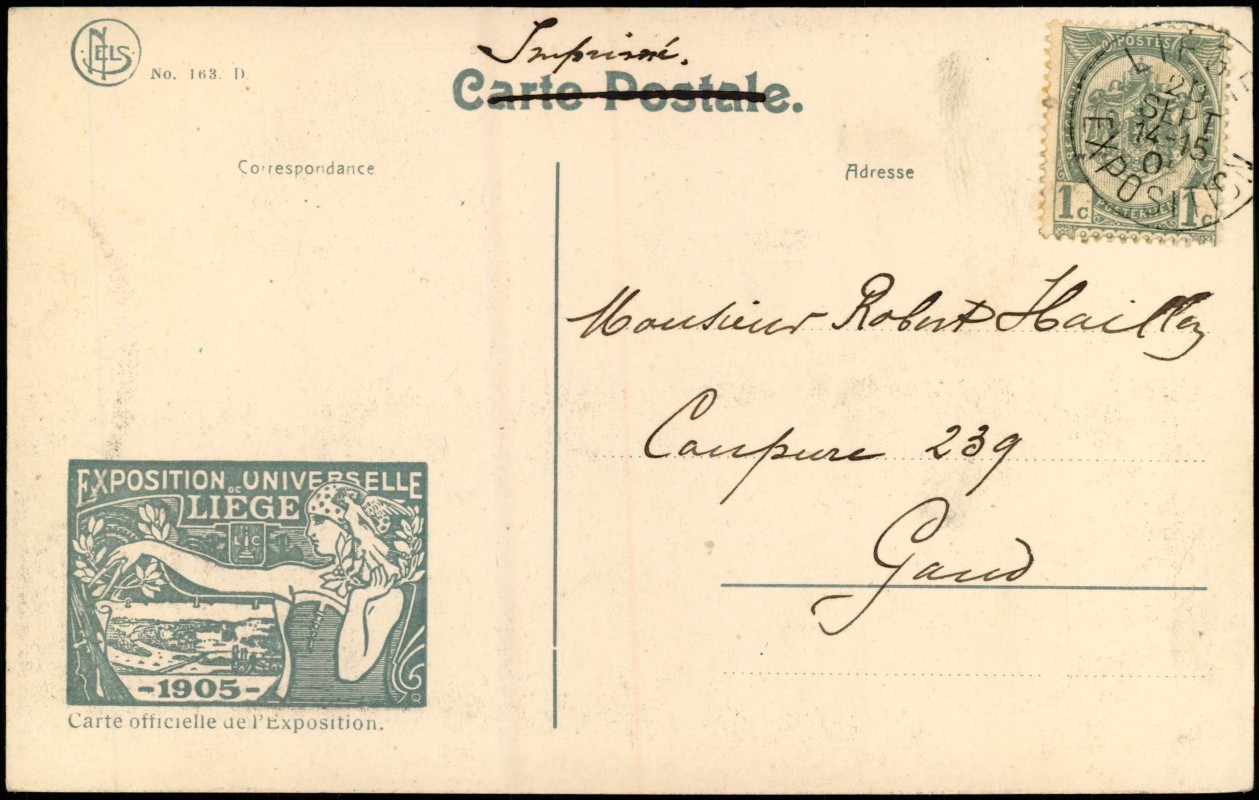 NELS
No. 163. D
Imprimé.
Carte Postale.
POSTES
1c 1c
POSTERIJEN
LIEGE
20
SEPT
14-15
EXPOSITION
Correspondance
Adresse
Monsieur Robert
Coupure 239
Gand
EXPOSITION UNIVERSELLE
DE
LIÉGE
LIC
-1905-
Carte officielle de l'Exposition.